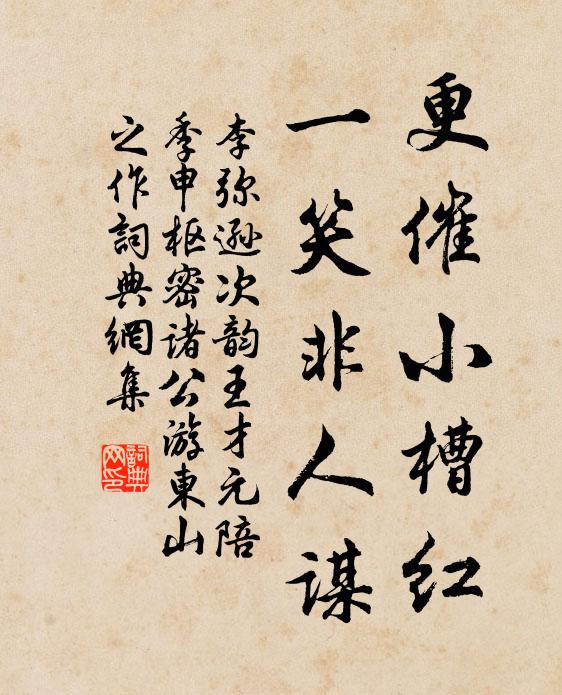 更催小槽红
一笑非人谋
李弥逊次韵王才元陪
季申枢密诸公游東山
之作詞典網集
詞典网印